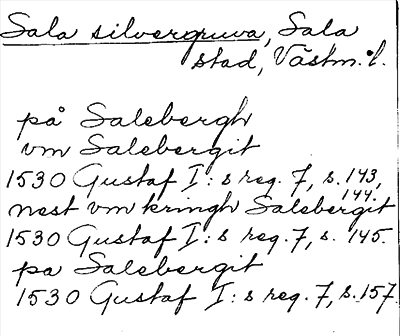 Sala silvergruva, Sala
stad, Västm. l.
på Salebergh
vm Salebergit
1530 Gustaf I:s reg. 7, s. 143,
144.
nest vm kringh Salebergit
1530 Gustaf I:s reg. 7, s. 145.
pa Salebergit
1530 Gustaf I:s reg. 7, s. 157